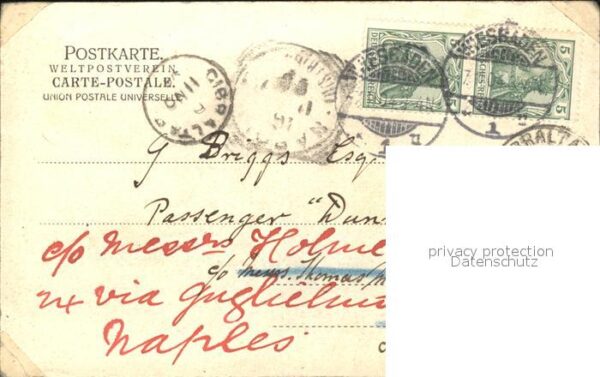 POSTKARTE.
WELTPOSTVEREIN
CARTE-POSTALE.
UNION POSTALE UNIVERSELLE
GIBRALTAR
WIESBADEN
WIESBADEN
1
1
5
5
5
G Briggs Esq
Passenger "Dun
c/o Messrs Holme
c/o Messrs. Thomas
via Guglielmo
Naples
privacy protection
Datenschutz